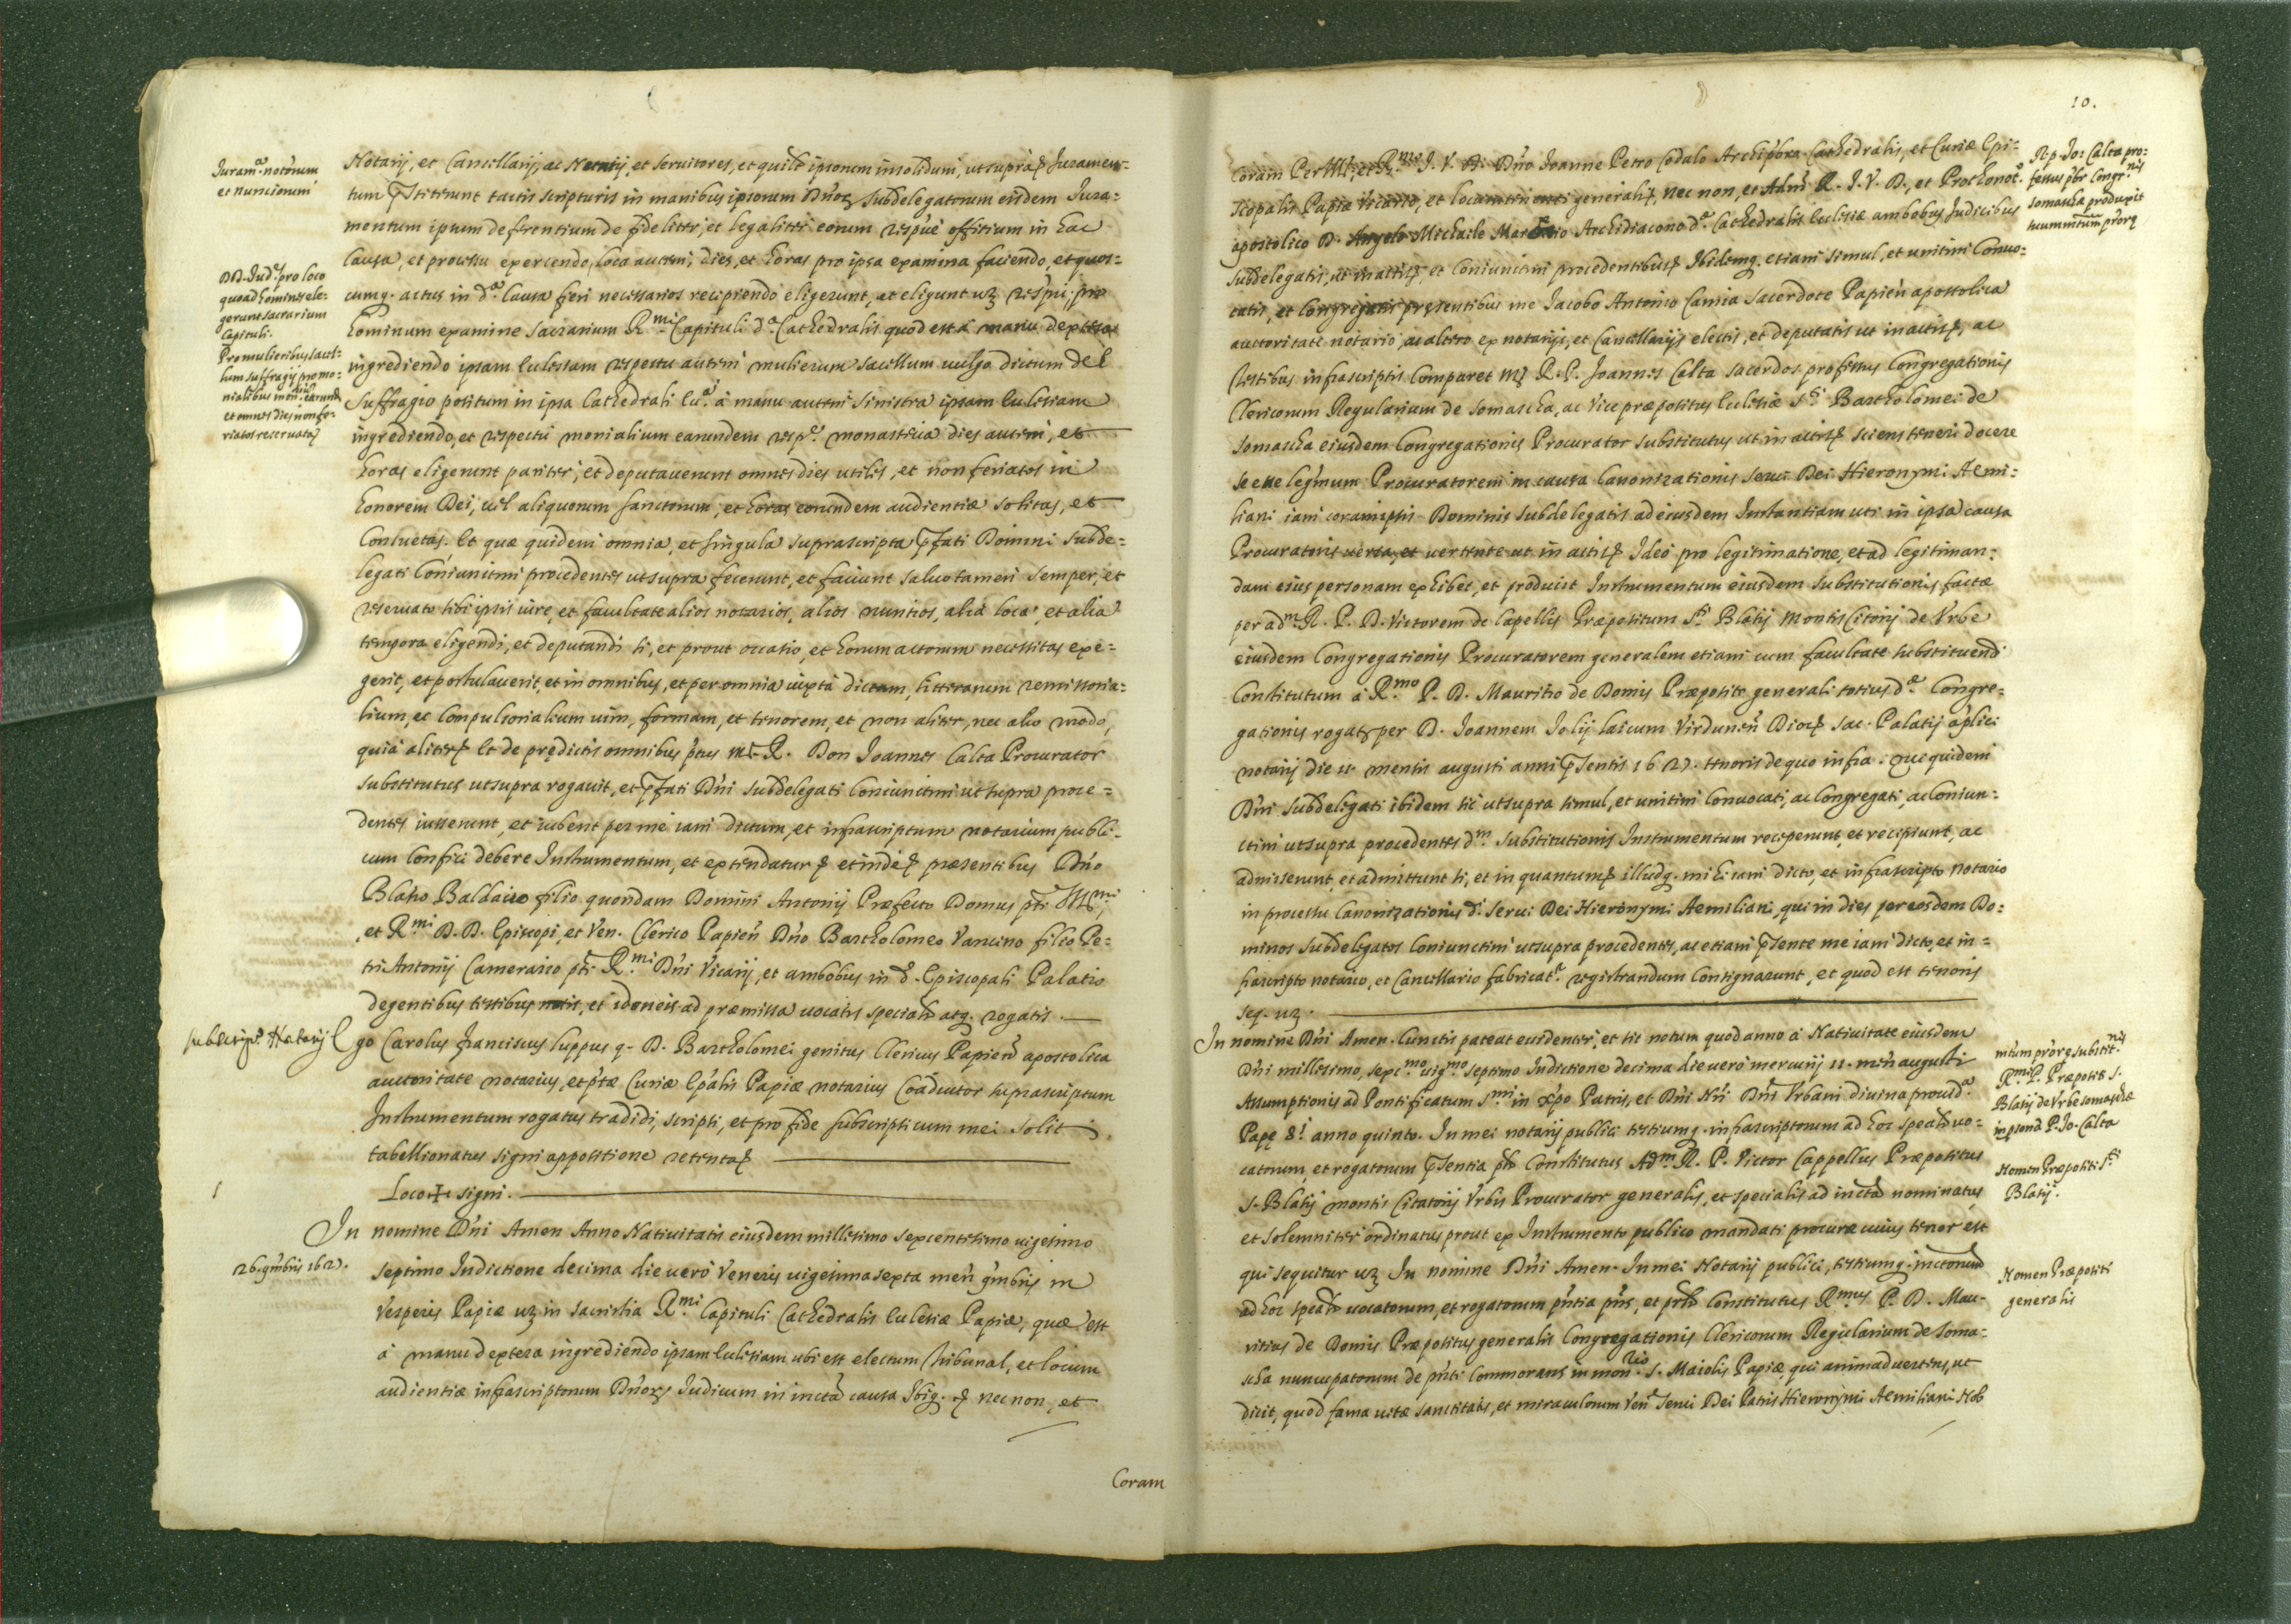 Juram.ᵃ notorum
et nunciorum
DD. Jud.ˢ pro loco
quoad homines ele-
gerunt sacrarium
Capituli.
Pro mulieribus sacel-
lum suffragij pro mo-
nialibus mon.ʳⁱᵃ earund.
et omnes dies non fe-
riatos reservatꝭ
Notarij, et Cancellarij, ac Nuntij, et servitores, et quilt ipsorum insolidum, ut supra &c. Juramen-
tum pr̄stiterunt tactis scripturis in manibus ipsorum Dnoꝝ Subdelegatorum eisdem Jura-
mentum ipsum defferentium de fideliter, et legaliter eorum respue offitium in hac
Causa, et processu exercendo, loca autem, dies, et horas pro ipsa examina faciendo, et quos-
cumq. actus in d.ᵃ Causa fieri necessarios recipiendo eligerunt, ac eligunt uꝫ respui. pro
hominum examine Sacrarium R.ᵐⁱ Capituli d.ᵃ Cathedralis quod est à manu dextra
ingrediendo ipsam Eclesiam respectu autem mulierum sacellum vulgo dictum del
Suffragio positum in ipsa Cathedrali Ecc.ᵃ à manu autem sinistra ipsam Eclesiam
ingrediendo, et respectu monialium earundem resp.ᵉ monasteria dies autem, et
horas eligerunt pariter, et deputaverunt omnes dies utiles, et non feriatos in
honorem Dei, vel aliquorum Sanctorum, et horas eorundem audientiæ solitas, et
Consuetas. Et quæ quidem omnia, et singula suprascripta pr̄fati Domini Subde-
legati Coniunctim procedentes ut supra fecerunt, et faciunt salvo tamen semper, et
reservato sibi ipsis iure, et facultate alios notarios, alios nuntios, alia loca, et alia
tempora eligendi, et deputandi si, et prout occasio, et horum actorum necessitas exe-
gerit, et postulaverit, et in omnibus, et per omnia iuxta dictam, litterarum remissoria-
lium, et Compulsorialium vim, formam, et tenorem, et non aliter, nec alio modo,
quia aliter &c. Et de prędictis omnibus ptus ml. R. Don Joannes Calta Procurator
substitutus ut supra rogavit, et pr̄fati Dni Subdelegati Coniunctim ut supra proce-
dentes iusserunt, et iubent per me iam dictum, et infrascriptum notarium publi-
cum Confici debere Instrumentum, et extendatur &c. et inde &c. præsentibus Dno
Blasio Baldairo filio quondam Domini Antonij Præfecto Domus pti Ill.ᵐⁱ,
et R.ᵐⁱ D. D. Episcopi, et Ven. Clerico Papien Dno Bartholomeo Vancino filio Pe-
tri Antonij Camerario pti R.ᵐⁱ Dni Vicarij, et ambobus in d. Episcopali Palatio
degentibus testibus notis, et idoneis ad præmissa vocatis specialt atq. rogatis.
subscrip.ᵒ Notarij
Ego Carolus franciscus luppus q. D. Bartholomei genitus Clericus Papien apostolica
auctoritate notarius, et ptæ Curiæ Epalis Papiæ notarius Coadiutor suprascriptum
Instrumentum rogatus tradidi, scripsi, et pro fide subscripsi cum mei solit
tabellionatus signi appositione retenta &c.
Loco ✠ signi.
In nomine Dni Amen Anno Nativitatis eiusdem millesimo sexcentesimo vigesimo
26. 9mbris 1627.
septimo Indictione decima die vero Veneris vigesima sexta men 9mbris in
Vesperis Papiæ uꝫ in sacristia R.ᵐⁱ Capituli Cathedralis Eclesiæ Papiæ, quæ est
à manu dextera ingrediendo ipsam Eclesiam ubi est electum tribunal, et locum
audientiæ infrascriptorum Dnoꝝ Judicum in incta causa Ibiq. &c. nec non, et
Coram
10.
Coram Per Ill., et R.ᵐᵒ J. V. D. Dno Joanne Petro Codalo Archipbro Cathedralis, et Curiæ Epi-
scopalis Papiæ Vicario, et locumtenenti generali &c. nec non, et Adm R. J. V. D., et Prothonot.
apostolico D. Angelo Michaele Mar Archidiacono d.ᵃ Cathedralis Eclesiæ ambobus Judicibus
subdelegatis, ut in actis &c. et Coniunctim procedentibus &c. Ibidemq. etiam simul, et unitim Convo-
catis, et Congregatis presentibus me Jacobo Antonio Camia sacerdote Papien apostolica
auctoritate notario, ac altero ex notarijs, et Cancellarijs electis, et deputatis ut in actis &c., ac
testibus infrascriptis Comparet M. R. P. Joannes Calta sacerdos professus Congregationis
Clericorum Regularium de Somascha, ac Vice præpositus Eclesiæ S.ᵗⁱ Bartholomei de
Somascha eiusdem Congregationis Procurator substitutus ut in actis &c. sciens teneri docere
se esse legmum Procuratorem in causa Canonizationis servi Dei Hieronymi Aemi-
liani iam coram ipsis Dominis subdelegatis ad eiusdem Instantiam uti in ipsa causa
Procuratoris versa, et vertente ut in actis &c. Ideo pro legitimatione, et ad legitiman-
dam eius personam exhibet, et producit Instrumentum eiusdem substitutionis factæ
per adm. R. P. D. Victorem de Capellis Præpositum S.ᵗⁱ Blasij Montis Citorij de Urbe
eiusdem Congregationis Procuratorem generalem etiam cum facultate substituendi
Constitutum à R.ᵐᵒ P. D. Mauritio de Domis Præposito generali totius d.ᵃ Congre-
gationis rogatꝭ per D. Joannem Jolij laicum Virdunen Dioc &c. sac. Palatij aplici
notarij die 11 mensis augusti anni pr̄sentis 1627. tenoris de quo infra. Qui quidem
Dni Subdelegati ibidem sic ut supra simul, et unitim Convocati, ac Congregati, ac Coniun-
ctim ut supra procedentes d.ᵐ substitutionis Instrumentum receperunt, et recipiunt, ac
admiserunt, et admittunt si, et in quantum &c. illudq. mihi iam dicto, et infrascripto notario
in processu Canonizationis d.ⁱ Servi Dei Hieronymi Aemiliani, qui in dies per eosdem Do-
minos Subdelegatos Coniunctim ut supra procedentes, ac etiam pr̄sente me iam dicto, et in-
frascripto notario, et Cancellario fabricat.ʳ registrandum Consignarunt, et quod est tenoris
seq. uꝫ.
Rp. Jo: Calta pro-
fessus pbr Congr.ⁿⁱˢ
somascha produxit
suum mtum prorꝭ
In nomine Dni Amen. Cunctis pateat evidenter, et sit notum quod anno à Nativitate eiusdem
Dni millesimo, sexc.ᵐᵒ vig.ᵐᵒ septimo Indictione decima die vero mercurij 11. men augusti
Assumptionis ad Pontificatum S.ᵐⁱ in xpo Patris, et Dni Nri Dni Urbani divina provid.ᵃ
Papę 8.ⁱ anno quinto. In mei notarij publici testiumq. infrascriptorum ad hoc spealt vo-
catorum, et rogatorum pr̄sentia plr Constitutus Ad.ᵐ R. P. Victor Cappellus Præpositus
S. Blasij montis Citatorij Urbis Procurator generalis, et specialis ad incta nominatus,
et solemniter ordinatus prout ex Instrumento publico mandati procuræ cuius tenor est
qui sequitur uꝫ In nomine Dni Amen. In mei Notarij publici, testiumq. inctorum
ad hoc spealt vocatorum, et rogatorum pntia pns, et prlr Constitutus R.ᵐᵘˢ P. D. Mau-
ritius de Domis Præpositus generalis Congregationis Clericorum Regularium de Soma-
scha nuncupatorum de pnti Commorans in mon.ʳⁱᵒ S. Maiolis Papiæ, qui animadvertens, ut
dicit, quod fama vitæ sanctitatis, et miraculorum Ven. Servi Dei Patris Hieronymi Aemiliani Nob
mtum prorꝭ substit.ⁿⁱˢ
R.ᵐⁱ P. Præpositi S.
Blasij de Urbe somaschæ
in psona P. Jo. Calta
Nomen Præpositi S.ᵗⁱ
Blasij.
Nomen Præpositi
generalis